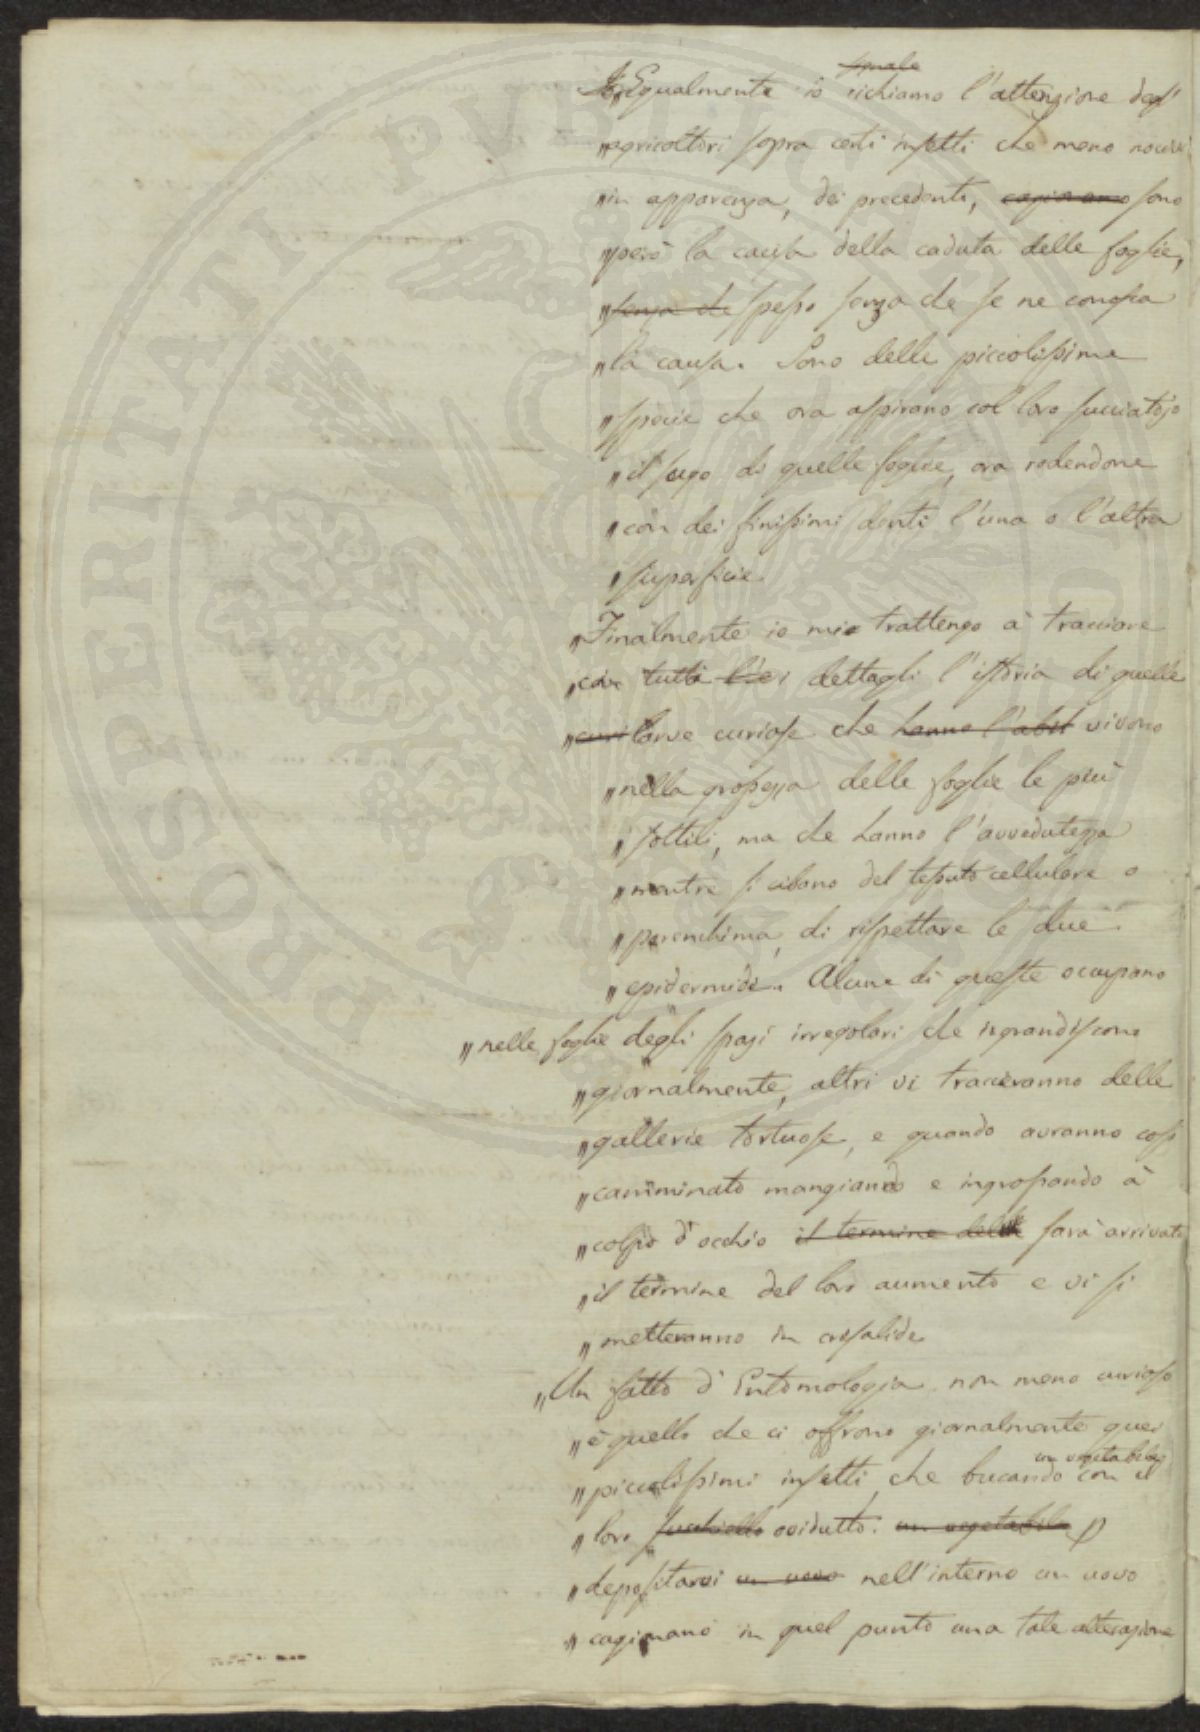 „Egualmente io richiamo l'attenzione degl'
„agricoltori sopra certi insetti che meno nocivi
„in apparenza, dei precedenti, cagionano sono
„però la causa della caduta delle foglie,
„senza che spesso senza che se ne conosca
„la causa. Sono delle picciolissime
„specie che ora aspirano col loro succiatojo
„il sugo di quelle foglie, ora rodendone
„con dei finissimi denti l'una o l'altra
„superficie.
„Finalmente io mi trattengo à tracciare
„con tutti i dettagli l'istoria di quelle
„curi larve curiose che hanno l'abil vivono
„nella grossezza delle foglie le più
„sottili, ma che hanno l'avvedutezza
„mentre si cibano del tessuto cellulare o
„parenchima, di rispettare le due
„epidermidi. Alcune di queste occupano
„nelle foglie degli spazi irregolari che ingrandiscono
„giornalmente, altri vi tracceranno delle
„gallerie tortuose, e quando avranno così
„camminato mangiando e ingrossando à
„colpo d'occhio il termine della sarà arrivato
„il termine del loro aumento e vi si
„metteranno in crisalide
„Un fatto d'Entomologia non meno curioso
„è quello che ci offrono giornalmente quei
„piccolissimi insetti che bucando un vegetabile con il
„loro succhiello ovidutto un vegetabile p
„depositarvi un uovo nell'interno un uovo
„cagionano in quel punto una tale alterazione
PROSPERITATI PVBLICAE